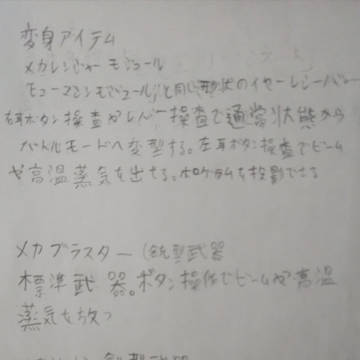 変身アイテム
メカレンジャーモジュール
ヒューマンモジュールと同じ形状のイヤーレシーバー
右耳ボタン操査かレバー操査で通常状態から
バトルモードへ変型する。左耳ボタン操査でビーム
や高温蒸気を出せる。ホログラムを投影できる
メカブラスター(銃型武器
標準武器。ボタン操作でビームか高温
蒸気を放つ